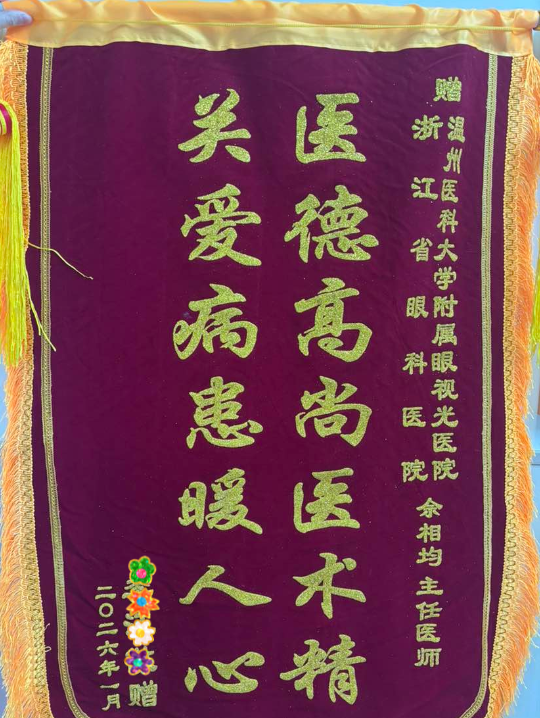 赠
温州医科大学附属眼视光医院
浙江省眼科医院
余相均主任医师
医德高尚医术精
关爱病患暖人心
赠
二〇二六年一月